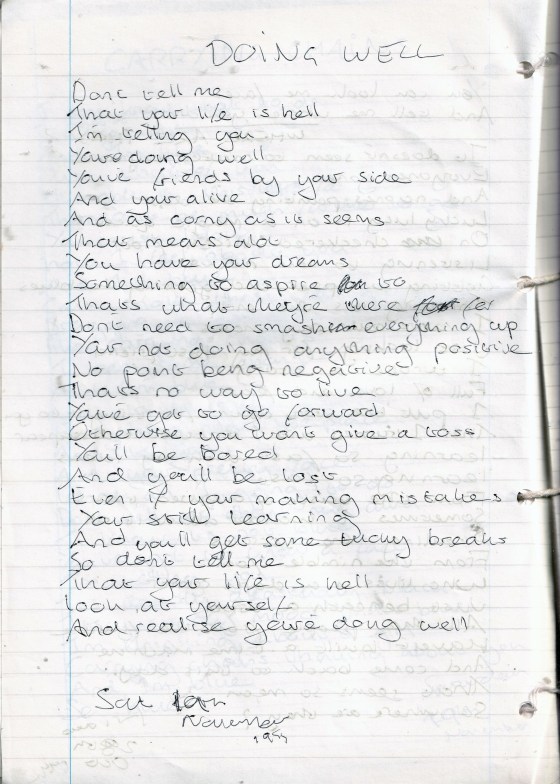 DOING WELL
Dont tell me
That your life is hell
I'm telling you
Youre doing well
You've friends by your side
And your alive
And as corny as it seems
That means alot
You have your dreams
Something to aspire to
Thats what they're there for
Don't need to smash everything up
Your not doing anything positive
No point being negative
Thats no way to live
You've got to go forward
Otherwise you wont give a toss
You'll be bored
And you'll be lost
Even if your making mistakes
Your still learning
And you'll get some lucky breaks
So don't tell me
That your life is hell
Look at yourself
And realise you're doing well
Sat
November